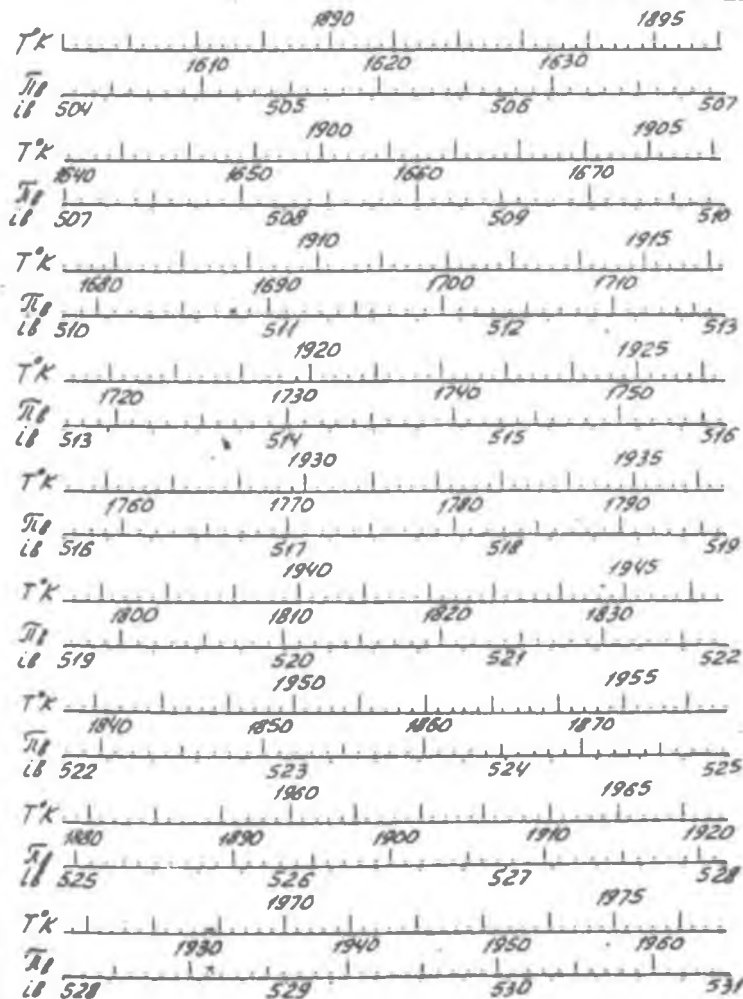 1890 1895
T°K
1610 1620 1630
πв
iв 504 505 506 507
1900 1905
T°K
1640 1650 1660 1670
πв
iв 507 508 509 510
1910 1915
T°K
1680 1690 1700 1710
πв
iв 510 511 512 513
1920 1925
T°K
1720 1730 1740 1750
πв
iв 513 514 515 516
1930 1935
T°K
1760 1770 1780 1790
πв
iв 516 517 518 519
1940 1945
T°K
1800 1810 1820 1830
πв
iв 519 520 521 522
1950 1955
T°K
1840 1850 1860 1870
πв
iв 522 523 524 525
1960 1965
T°K
1880 1890 1900 1910 1920
πв
iв 525 526 527 528
1970 1975
T°K
1930 1940 1950 1960
πв
iв 528 529 530 531